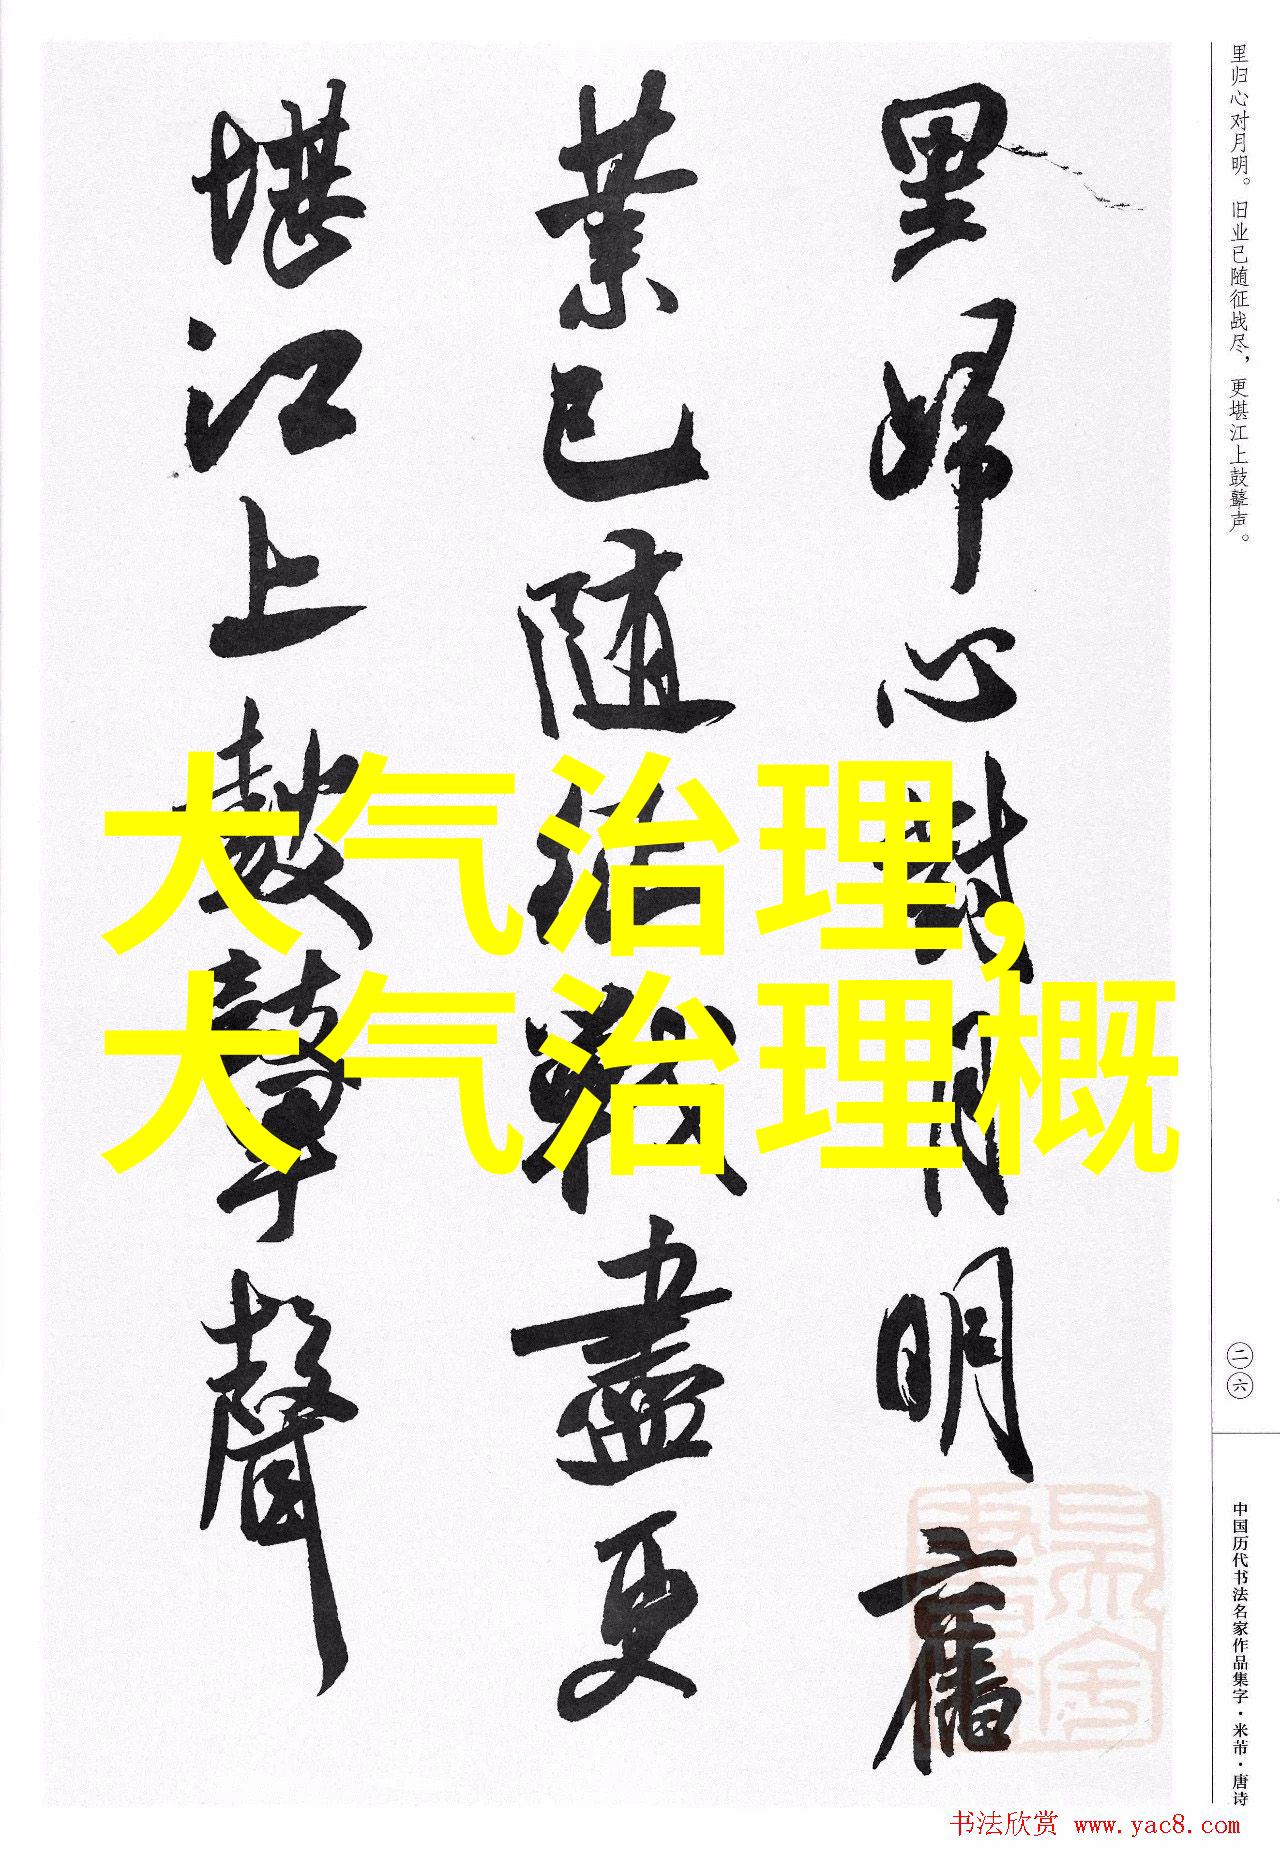 里歸心對月明舊
業已随征戰盡更
堪江上鼓鼙聲
大气治理,
大气治理概
里归心对月明。旧业已随征战尽，更堪江上鼓鼙声。
二六
中国历代书法名家作品集字·米芾·唐诗
书法欣赏 www.yac8.com